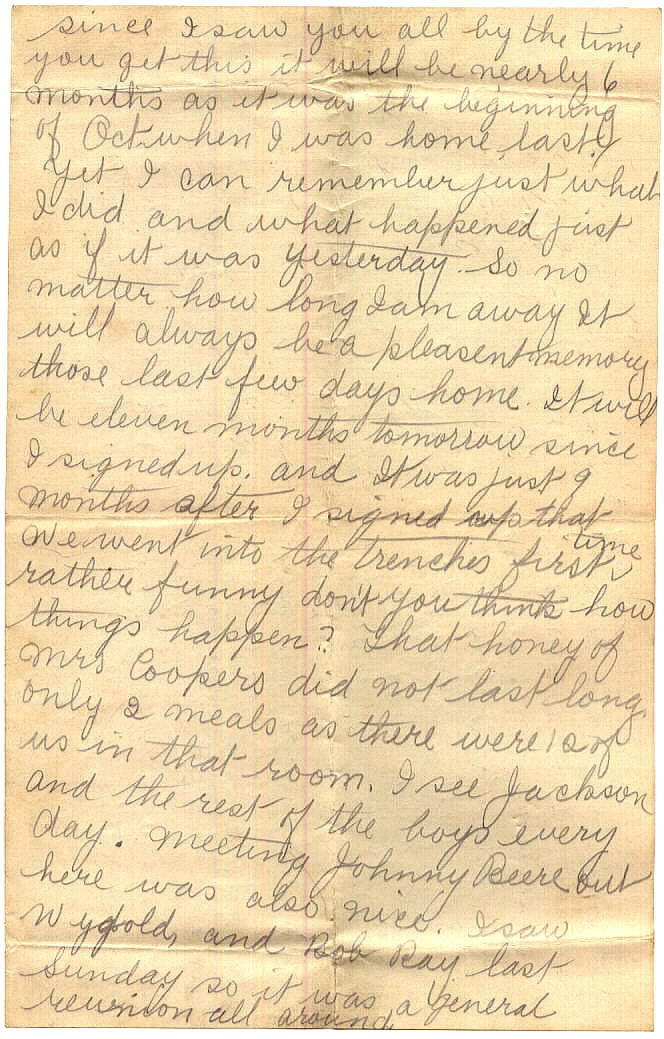 since I saw you all by the time
you get this it will be nearly 6
months as it was the beginning
of Oct when I was home last.
Yet I can remember just what
I did and what happened just
as if it was yesterday. So no
matter how long I am away It
will always be a pleasent memory
those last few days home. It will
be eleven months tomorrow since
I signed up. and It was just 9
months after I signed up that
time
We went into the trenches first,
rather funny don't you think how
things happen? That honey of
Mrs Coopers did not last long
only 2 meals as there were 12 of
us in that room. I see Jackson
and the rest of the boys every
day. Meeting Johnny Beere out
here was also nice. I saw
and Bob Ray last
Sunday so it was a general
reunion all around